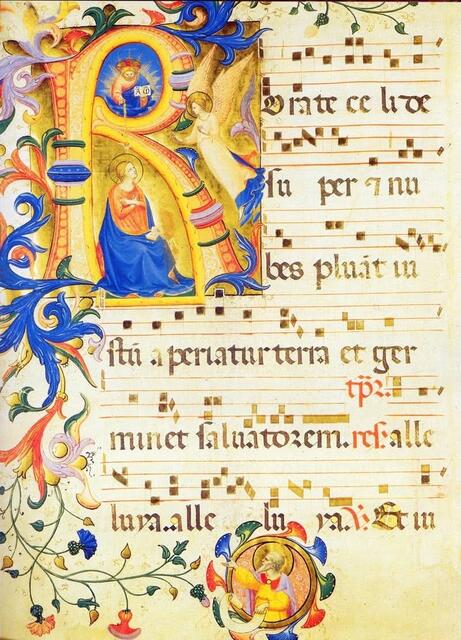 R
orate celi de
su per ⁊ nu
bes pluāt iu
stū aperiatur terra et ger
tp̄r.
minet saluatorem. res: alle
luya. alle lu ya. V: Et in
A Ω